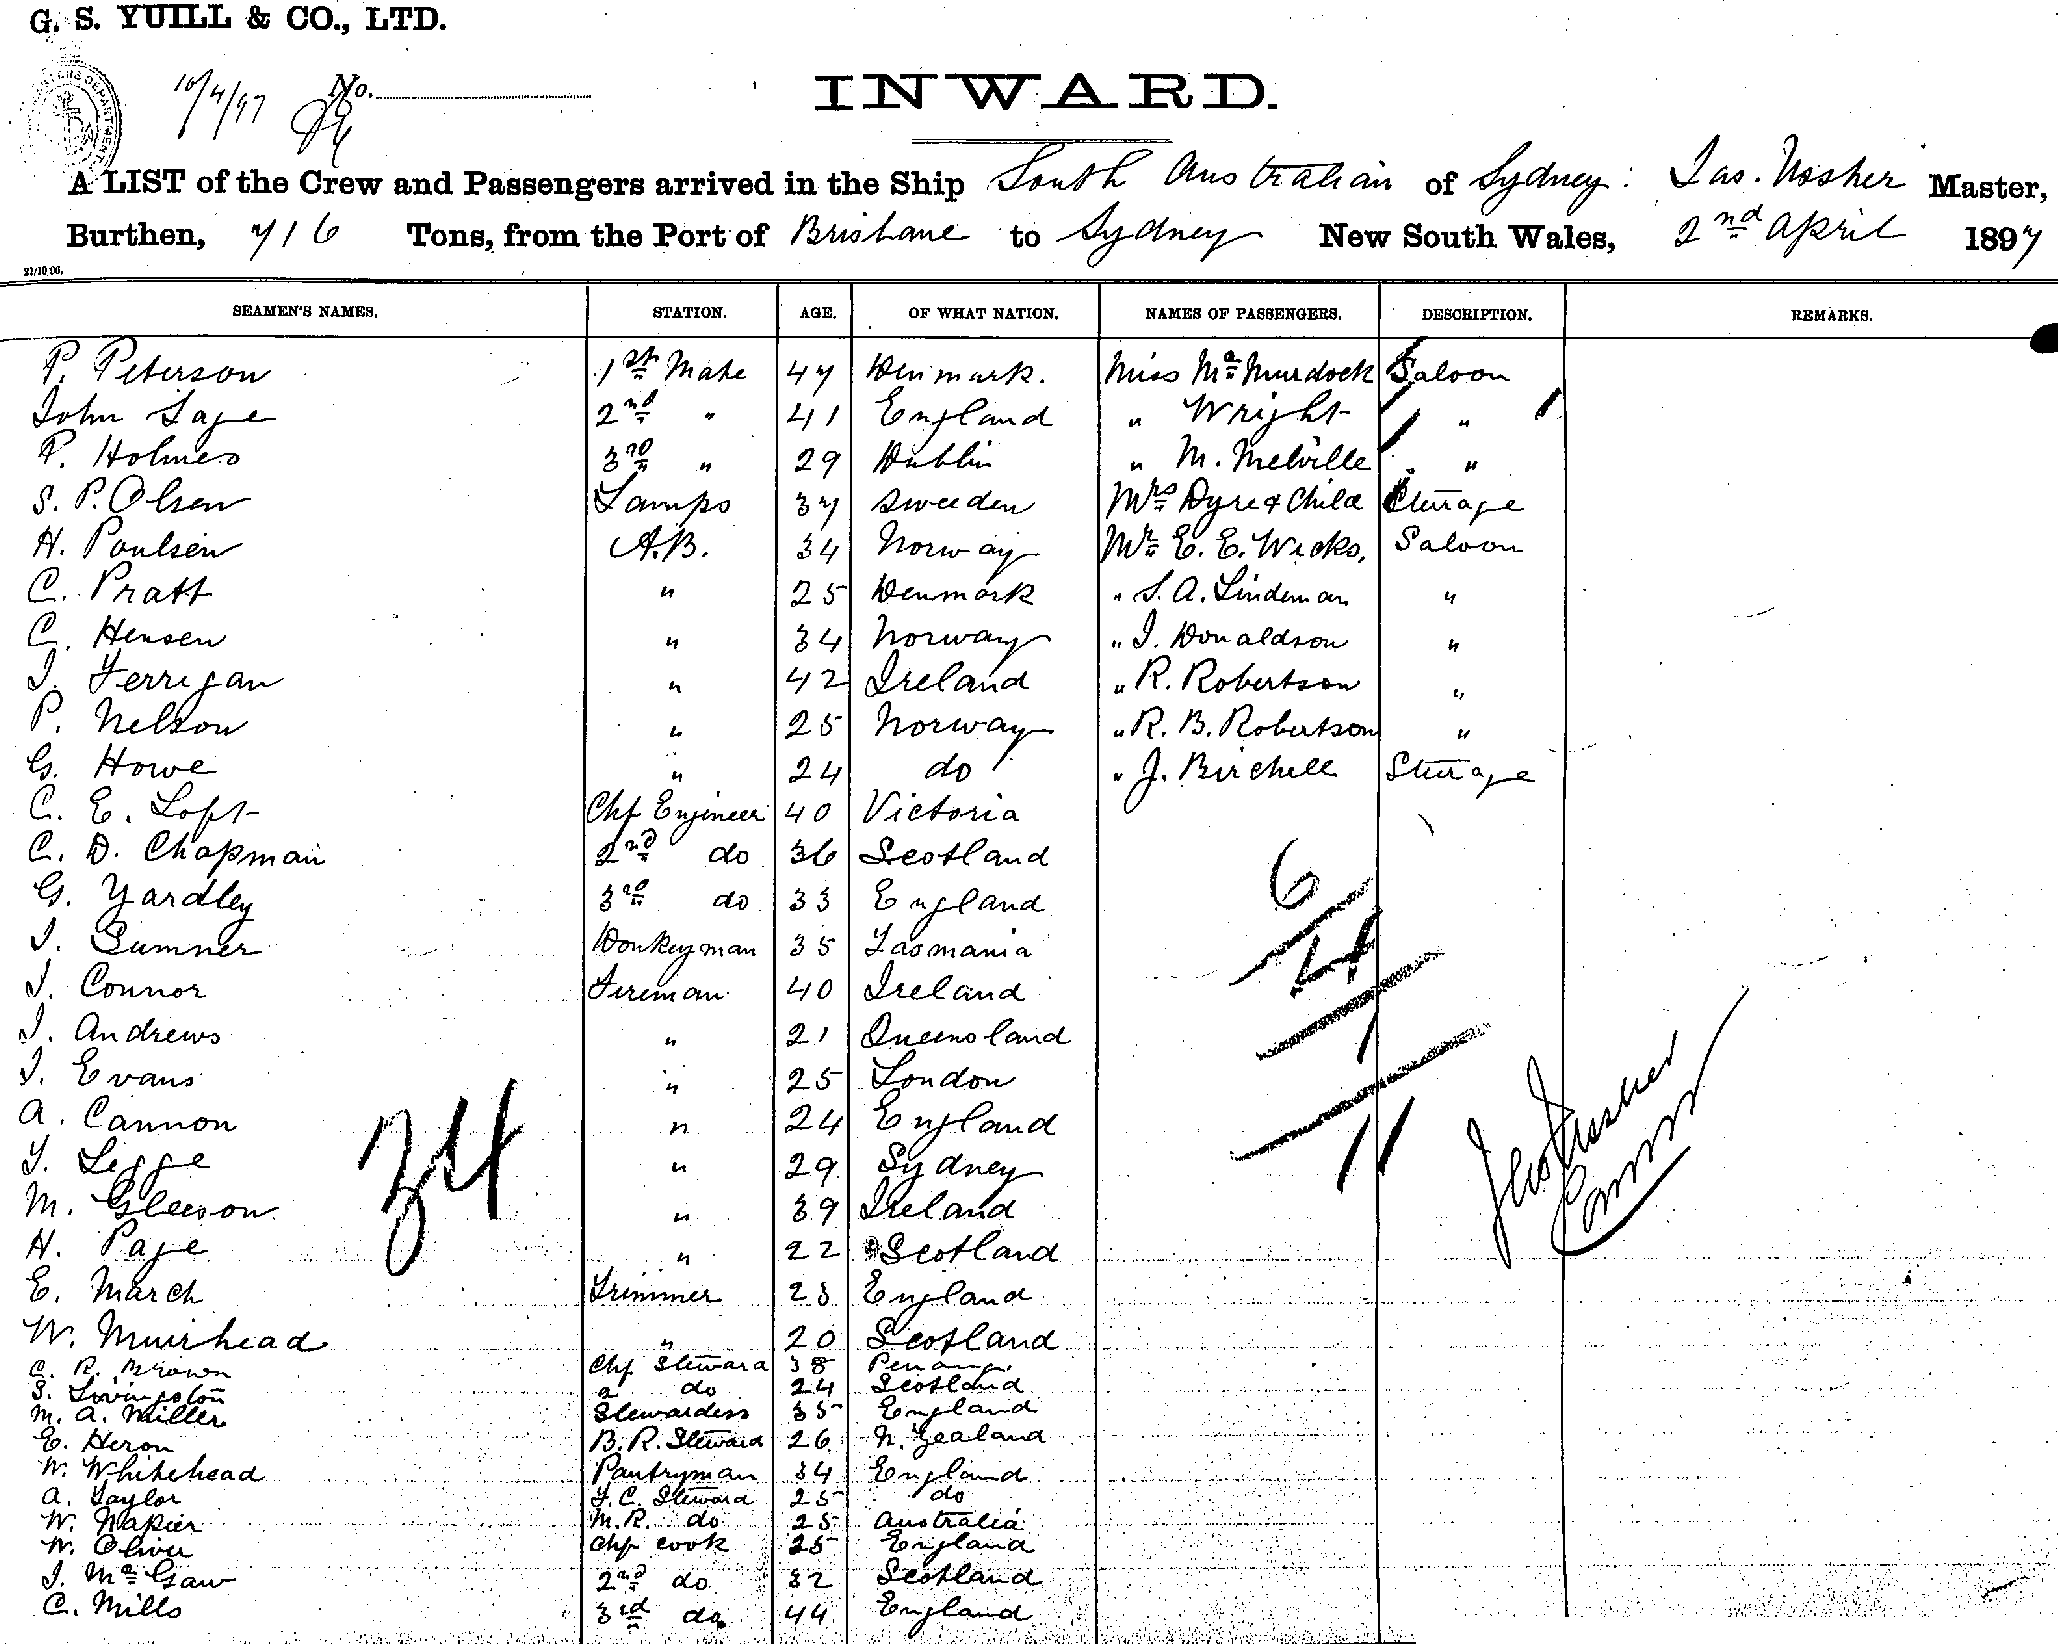 G. S. YUILL & CO., LTD.
10/4/97 No.
INWARD.
A LIST of the Crew and Passengers arrived in the Ship South Australian of Sydney: Jas. Master,
Burthen, 716 Tons, from the Port of Brisbane to Sydney New South Wales, 2nd April 1897
SEAMEN'S NAMES. STATION. AGE. OF WHAT NATION. NAMES OF PASSENGERS. DESCRIPTION. REMARKS.
P. Peterson 1st Mate 47 Denmark. Miss Mc Murdock Saloon
John Sage 2nd " 41 England " Wright "
P. Holmes 3rd " 29 Dublin " M. Melville "
S. P. Olsen Lamps 37 Sweeden Mrs Dyre & Child Sterage
H. Poulsen A.B. 34 Norway Mr E. E. Wicks, Saloon
C. Pratt " 25 Denmark " S. A. Lindeman "
C. Hensen " 34 Norway " J. Donaldson "
J. Ferrigan " 42 Ireland " R. Robertson "
P. Nelson " 25 Norway " R. B. Robertson "
G. Howe " 24 do " J. Birchell Sterage
C. E. Loft Chf Engineer 40 Victoria
C. D. Chapman 2nd do 36 Scotland
G. Yardley 3rd do 33 England
J. Sumner Donkeyman 35 Tasmania
J. Connor Fireman 40 Ireland
J. Andrews " 21 Queensland
J. Evans " 25 London
A. Cannon " 24 England
T. Legge " 29 Sydney
M. Gleeson " 39 Ireland
H. Page " 22 Scotland
E. March Trimmer 23 England
W. Muirhead " 20 Scotland
C. R. Brown Chf Steward 38 Penang
S. Livingston 2 do 24 Scotland
M. A. Miller Stewardess 35 England
E. Heron B. R. Steward 26 N. Zealand
W. Whitehead Pantryman 34 England
A. Taylor F. C. Steward 25 do
W. Napier M. R. do 25 Australia
W. Oliver Chf cook 25 England
J. McGaw 2nd do 32 Scotland
C. Mills 3rd do 44 England
34
6
4
1
11